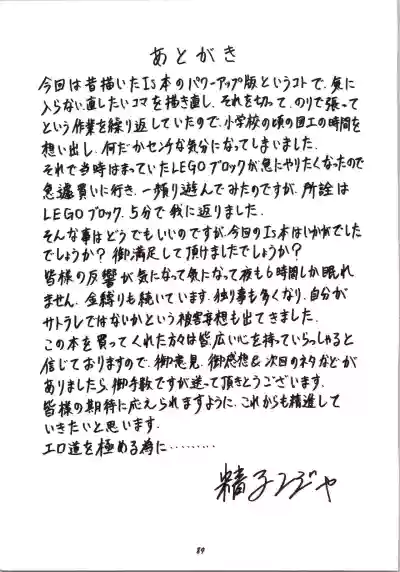 あとがき
今回は昔描いたI"s本のパワーアップ版というコトで、気に
入らない、直したいコマを描き直し、それを切って、のりで張って
という作業を繰り返していたので、小学校の頃の図工の時間を
想い出し、何だかセンチな気分になってしまいました。
それで当時はまっていたLEGOブロックが急にやりたくなったので
急遽買いに行き、一頻り遊んでみたのですが、所詮は
LEGOブロック、5分で我に返りました。
そんな事はどうでもいいのですが、今回のI"s本はいかがでした
でしょうか？御満足して頂けましたでしょうか？
皆様の反響が気になって気になって夜も6時間しか眠れ
ません。金縛りも続いています。独り事も多くなり、自分が
サトラレではないかという被害妄想も出てきました。
この本を買ってくれた方々は皆、広い心を持っていらっしゃると
信じておりますので、御意見、御感想&次回のネタなどが
ありましたら、御手数ですが送って頂きとうございます。
皆様の期待に応えられますように、これからも精進して
いきたいと思います。
エロ道を極める為に………
精子ンジャ
89